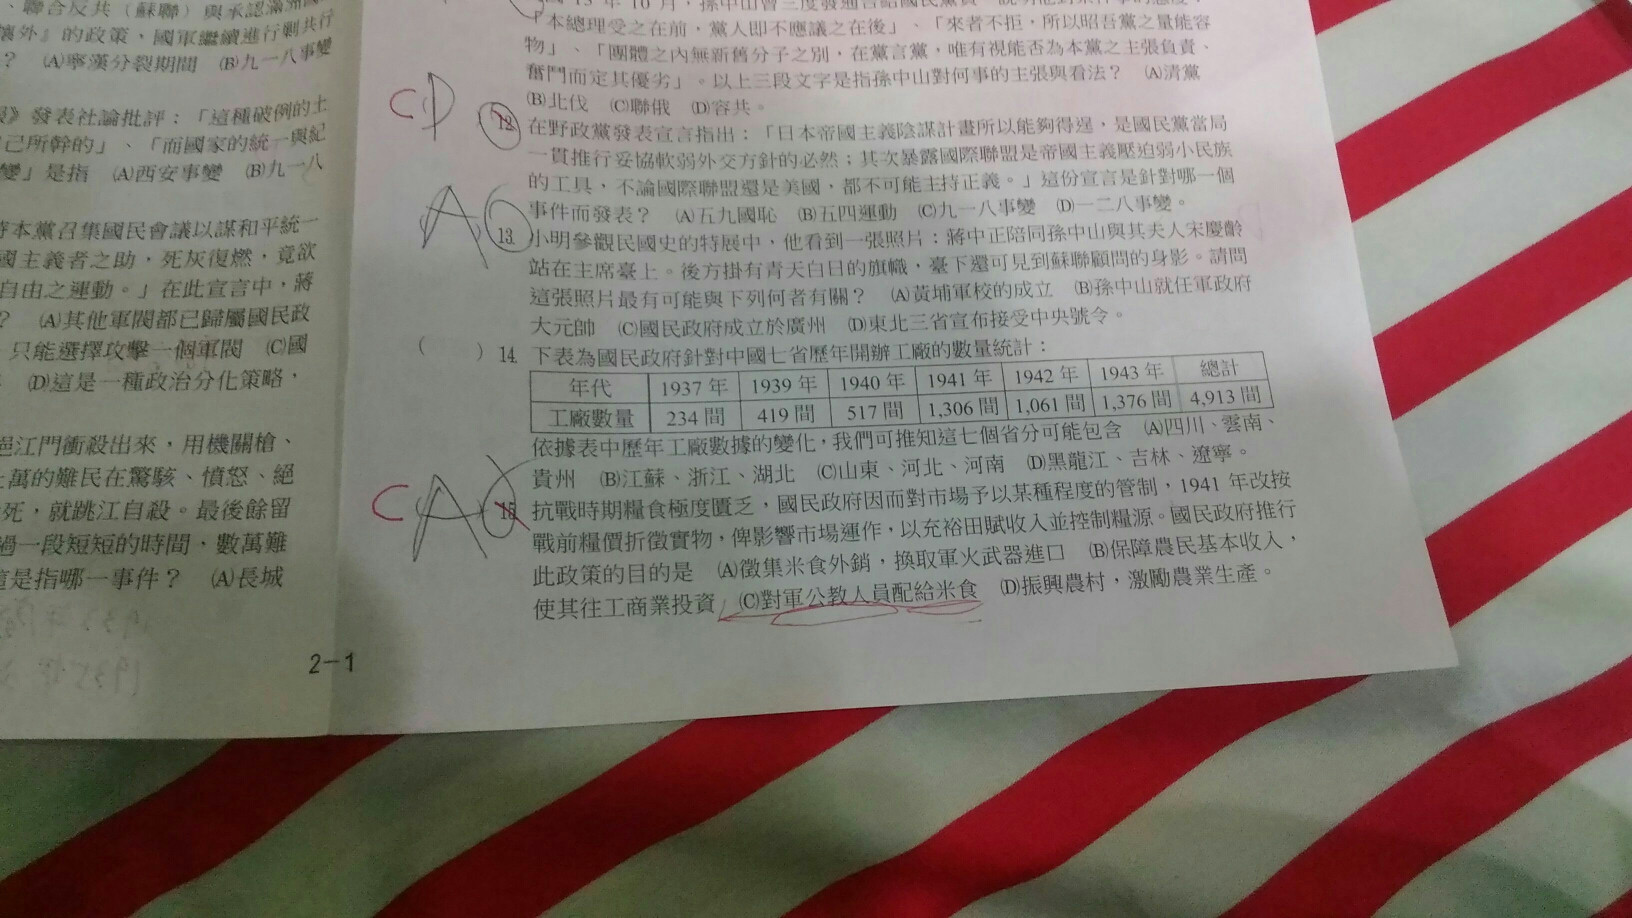 聯合反共（蘇聯）與承認滿洲國
壤外』的政策，國軍繼續進行剿共行
？ (A)寧漢分裂期間 (B)九一八事變
》發表社論批評：「這種破例的土
己所幹的」、「而國家的統一與紀
變」是指 (A)西安事變 (B)九一八
本黨召集國民會議以謀和平統一
國主義者之助，死灰復燃，竟欲
自由之運動。」在此宣言中，蔣
？ (A)其他軍閥都已歸屬國民政
只能選擇攻擊一個軍閥 (C)國
(D)這是一種政治分化策略，
江門衝殺出來，用機關槍、
萬的難民在驚駭、憤怒、絕
死，就跳江自殺。最後餘留
過一段短短的時間，數萬難
這是指哪一事件？ (A)長城
2-1
「本總理受之在前，黨人即不應議之在後」、「來者不拒，所以昭吾黨之量能容
物」、「團體之內無新舊分子之別，在黨言黨，唯有視能否為本黨之主張負責、
奮鬥而定其優劣」。以上三段文字是指孫中山對何事的主張與看法？ (A)清黨
(B)北伐 (C)聯俄 (D)容共。
C D 12 在野政黨發表宣言指出：「日本帝國主義陰謀計畫所以能夠得逞，是國民黨當局
一貫推行妥協軟弱外交方針的必然；其次暴露國際聯盟是帝國主義壓迫弱小民族
的工具，不論國際聯盟還是美國，都不可能主持正義。」這份宣言是針對哪一個
事件而發表？ (A)五九國恥 (B)五四運動 (C)九一八事變 (D)一二八事變。
A 13 小明參觀民國史的特展中，他看到一張照片：蔣中正陪同孫中山與其夫人宋慶齡
站在主席臺上。後方掛有青天白日的旗幟，臺下還可見到蘇聯顧問的身影。請問
這張照片最有可能與下列何者有關？ (A)黃埔軍校的成立 (B)孫中山就任軍政府
大元帥 (C)國民政府成立於廣州 (D)東北三省宣布接受中央號令。
（ ）14 下表為國民政府針對中國七省歷年開辦工廠的數量統計：
年代 1937 年 1939 年 1940 年 1941 年 1942 年 1943 年 總計
工廠數量 234 間 419 間 517 間 1,306 間 1,061 間 1,376 間 4,913 間
依據表中歷年工廠數據的變化，我們可推知這七個省分可能包含 (A)四川、雲南、
貴州 (B)江蘇、浙江、湖北 (C)山東、河北、河南 (D)黑龍江、吉林、遼寧。
C A 15 抗戰時期糧食極度匱乏，國民政府因而對市場予以某種程度的管制，1941 年改按
戰前糧價折徵實物，俾影響市場運作，以充裕田賦收入並控制糧源。國民政府推行
此政策的目的是 (A)徵集米食外銷，換取軍火武器進口 (B)保障農民基本收入，
使其往工商業投資 (C)對軍公教人員配給米食 (D)振興農村，激勵農業生產。